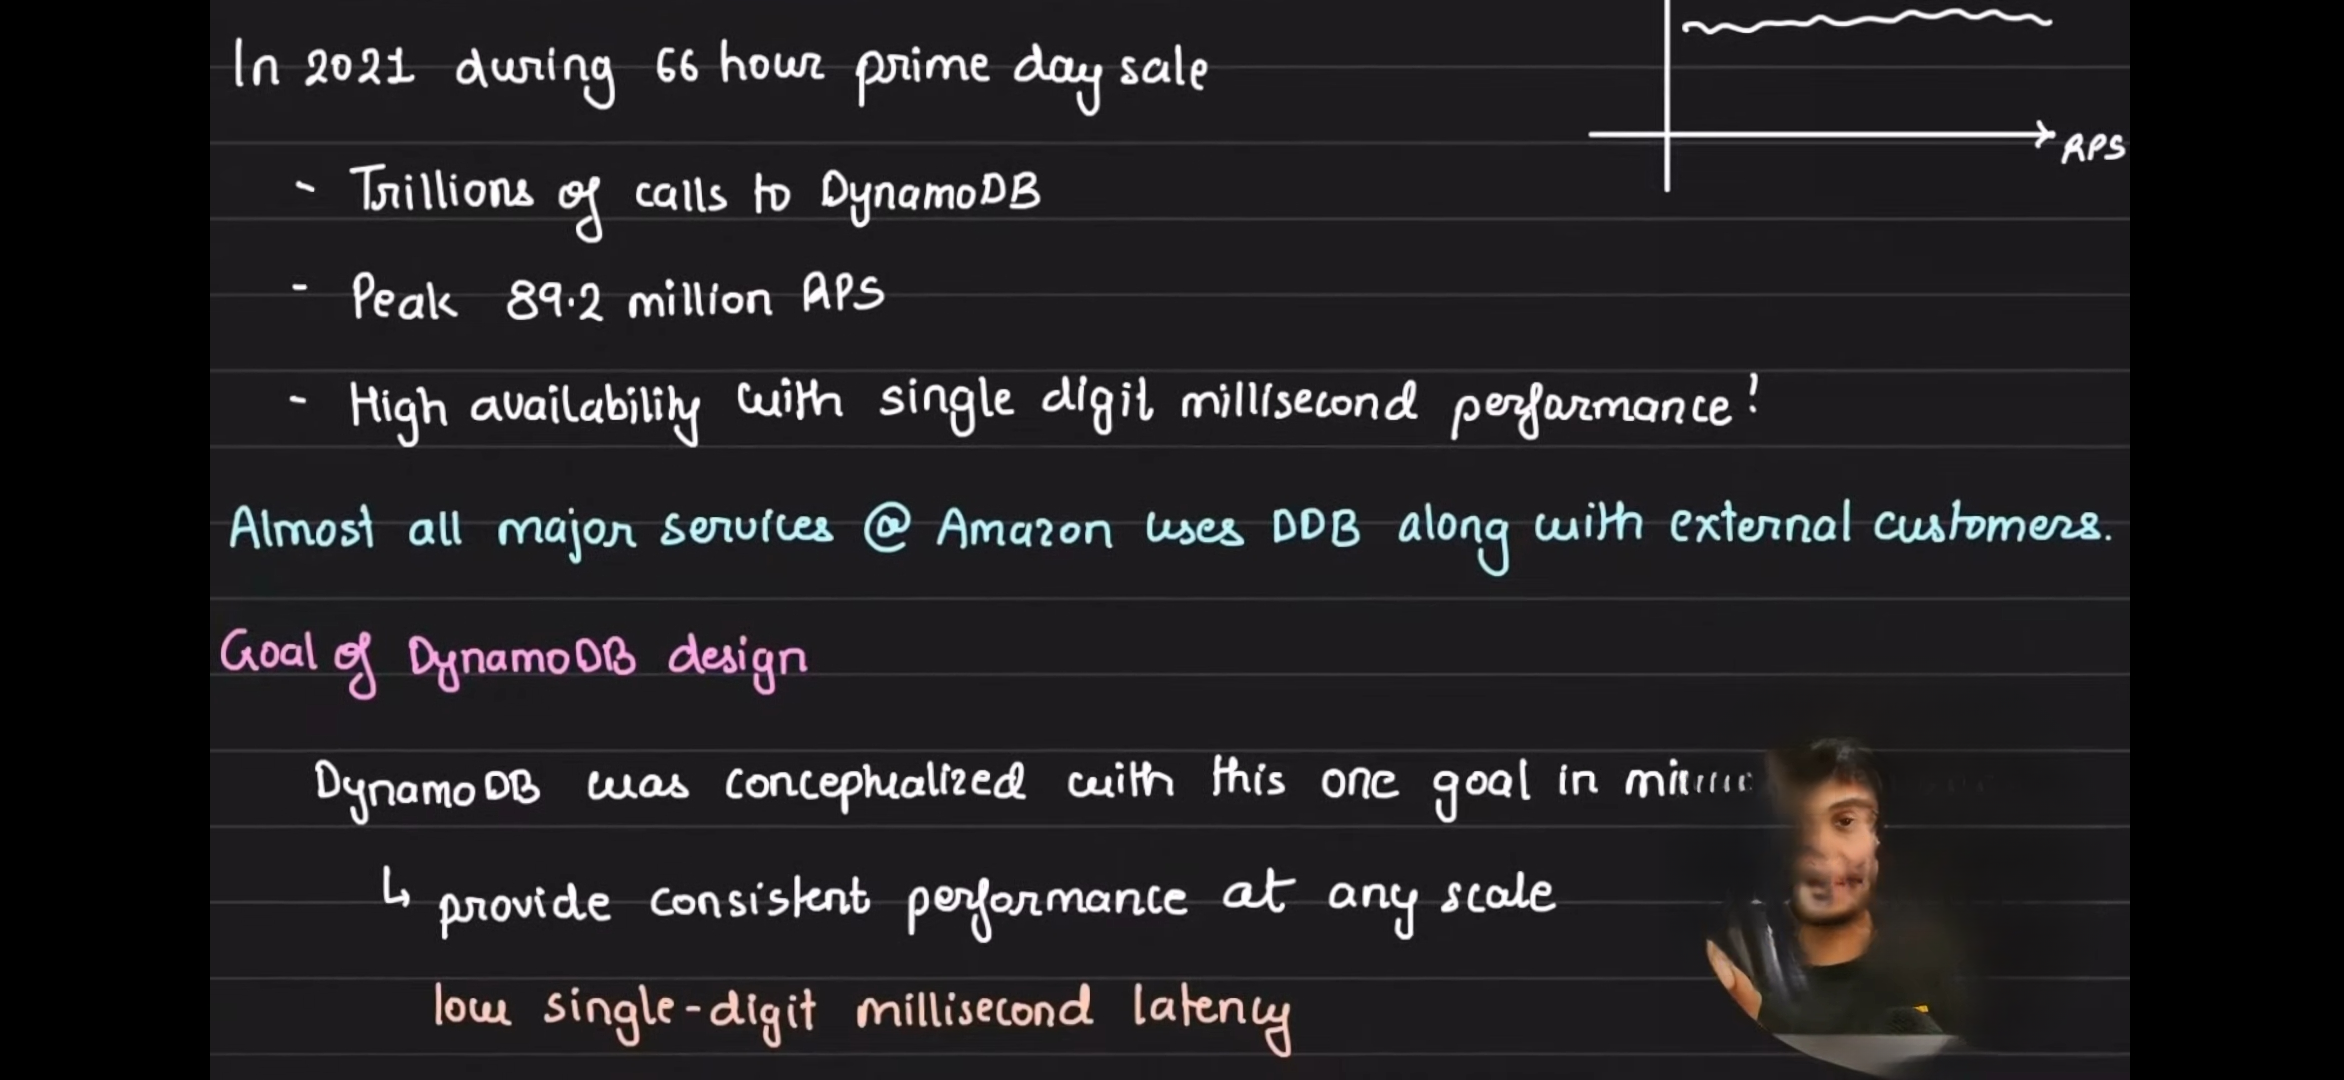 In 2021 during 66 hour prime day sale
RPS
- Trillions of calls to DynamoDB
- Peak 89.2 million RPS
- High availability with single digit millisecond performance!
Almost all major services @ Amazon uses DDB along with external customers.
Goal of DynamoDB design
DynamoDB was conceptualized with this one goal in
↳ provide consistent performance at any scale
low single-digit millisecond latency